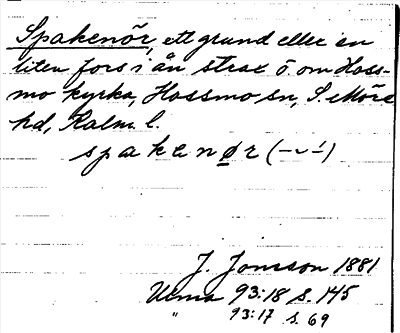 Spakenör, ett grund eller en
liten fors i ån strax ö. om Hoss-
mo kyrka, Hossmo sn, S. Möre
hd, Kalm. l.
spakenør (-⏑-́)
J. Jonsson 1881
Uma 93:18 s. 145
" 93:17 s. 69